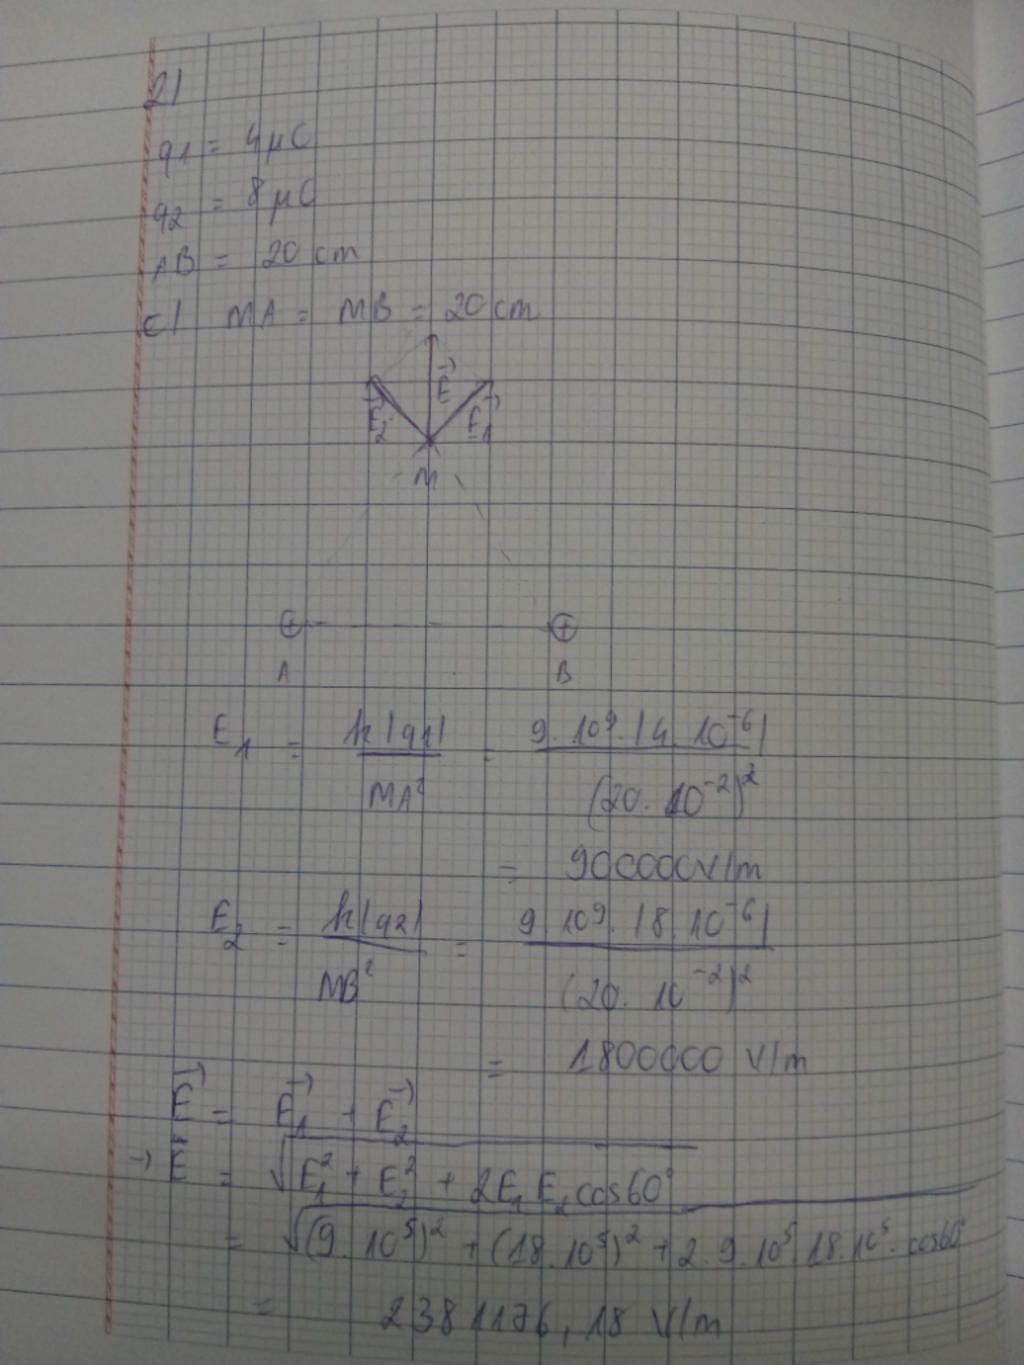 2/
q1 = 4 μC
q2 = 8 μC
AB = 20 cm
c/ MA = MB = 20 cm
E⃗
E⃗2 E⃗1
M
A B
E1 = k|q1| / MA² = 9.10⁹.|4.10⁻⁶| / (20.10⁻²)²
= 900000 V/m
E2 = k|q2| / MB² = 9.10⁹.|8.10⁻⁶| / (20.10⁻²)²
= 1800000 V/m
E⃗ = E⃗1 + E⃗2
→ E = √(E1² + E2² + 2E1 E2 cos60°)
= √((9.10⁵)² + (18.10⁵)² + 2.9.10⁵.18.10⁵.cos60°)
= 2381176,18 V/m